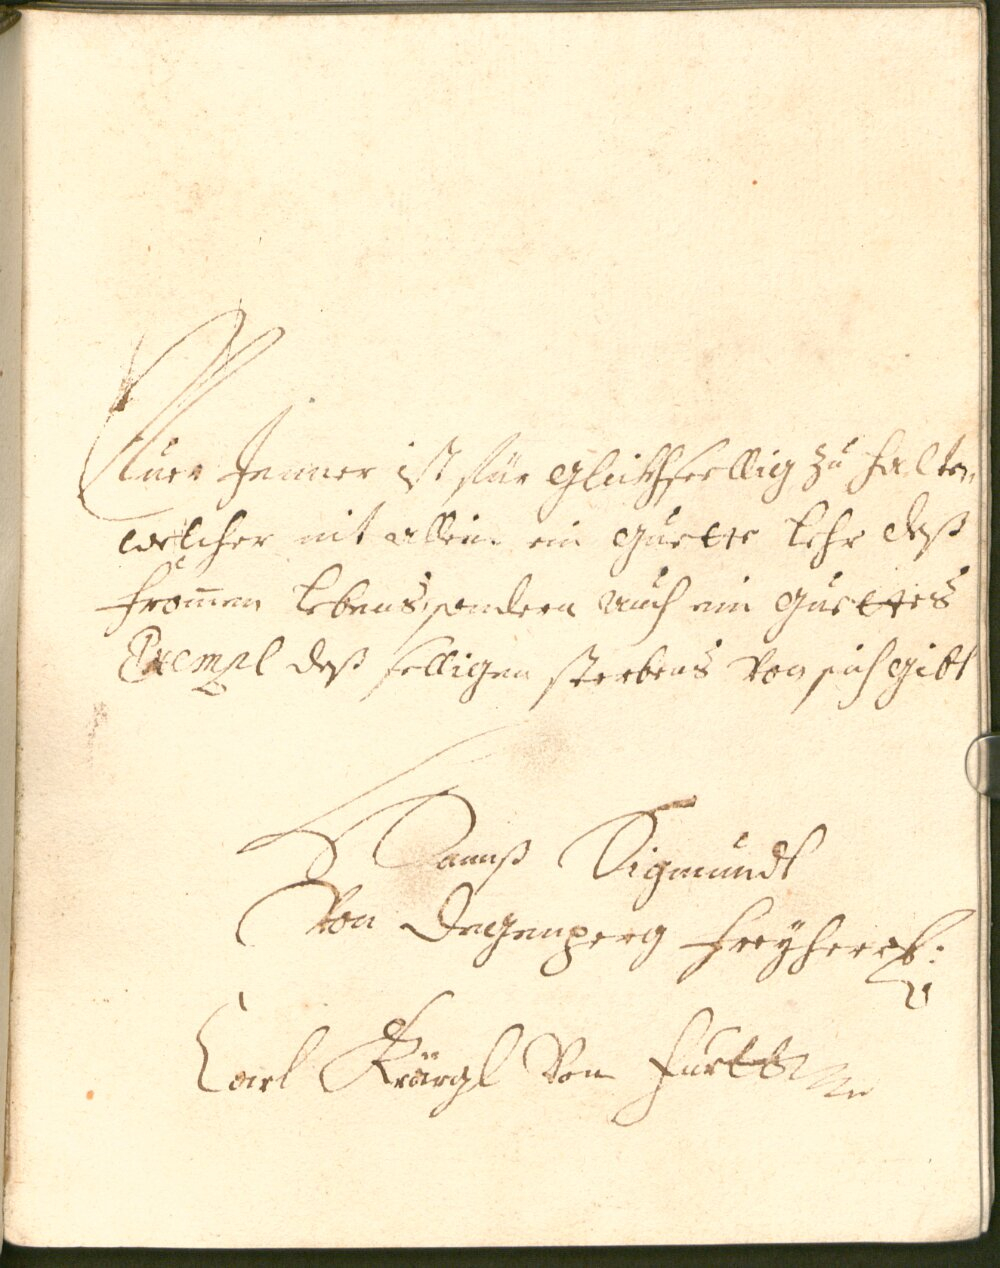 Nuer Jenner ist für Glückhseellig zu halten,
welcher nit allein ein guette Lehr deß
from̄en Lebens, sondern auch ein guettes
Exempl deß selligen sterbens von sich gibt
Hannß Sigmundt
Von Degenperg Freyherr
Carl Kärgl Von Furtt